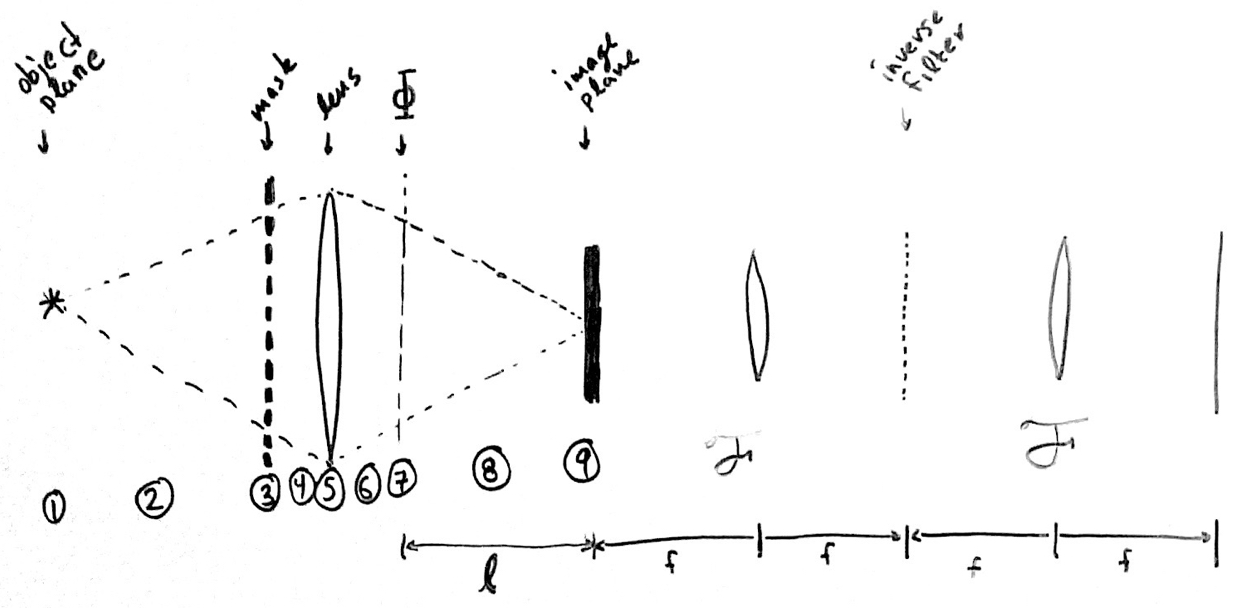 object
plane
mask
lens
Φ
image
plane
inverse
filter
① ② ③ ④ ⑤ ⑥ ⑦ ⑧ ⑨
ℱ ℱ
l f f f f